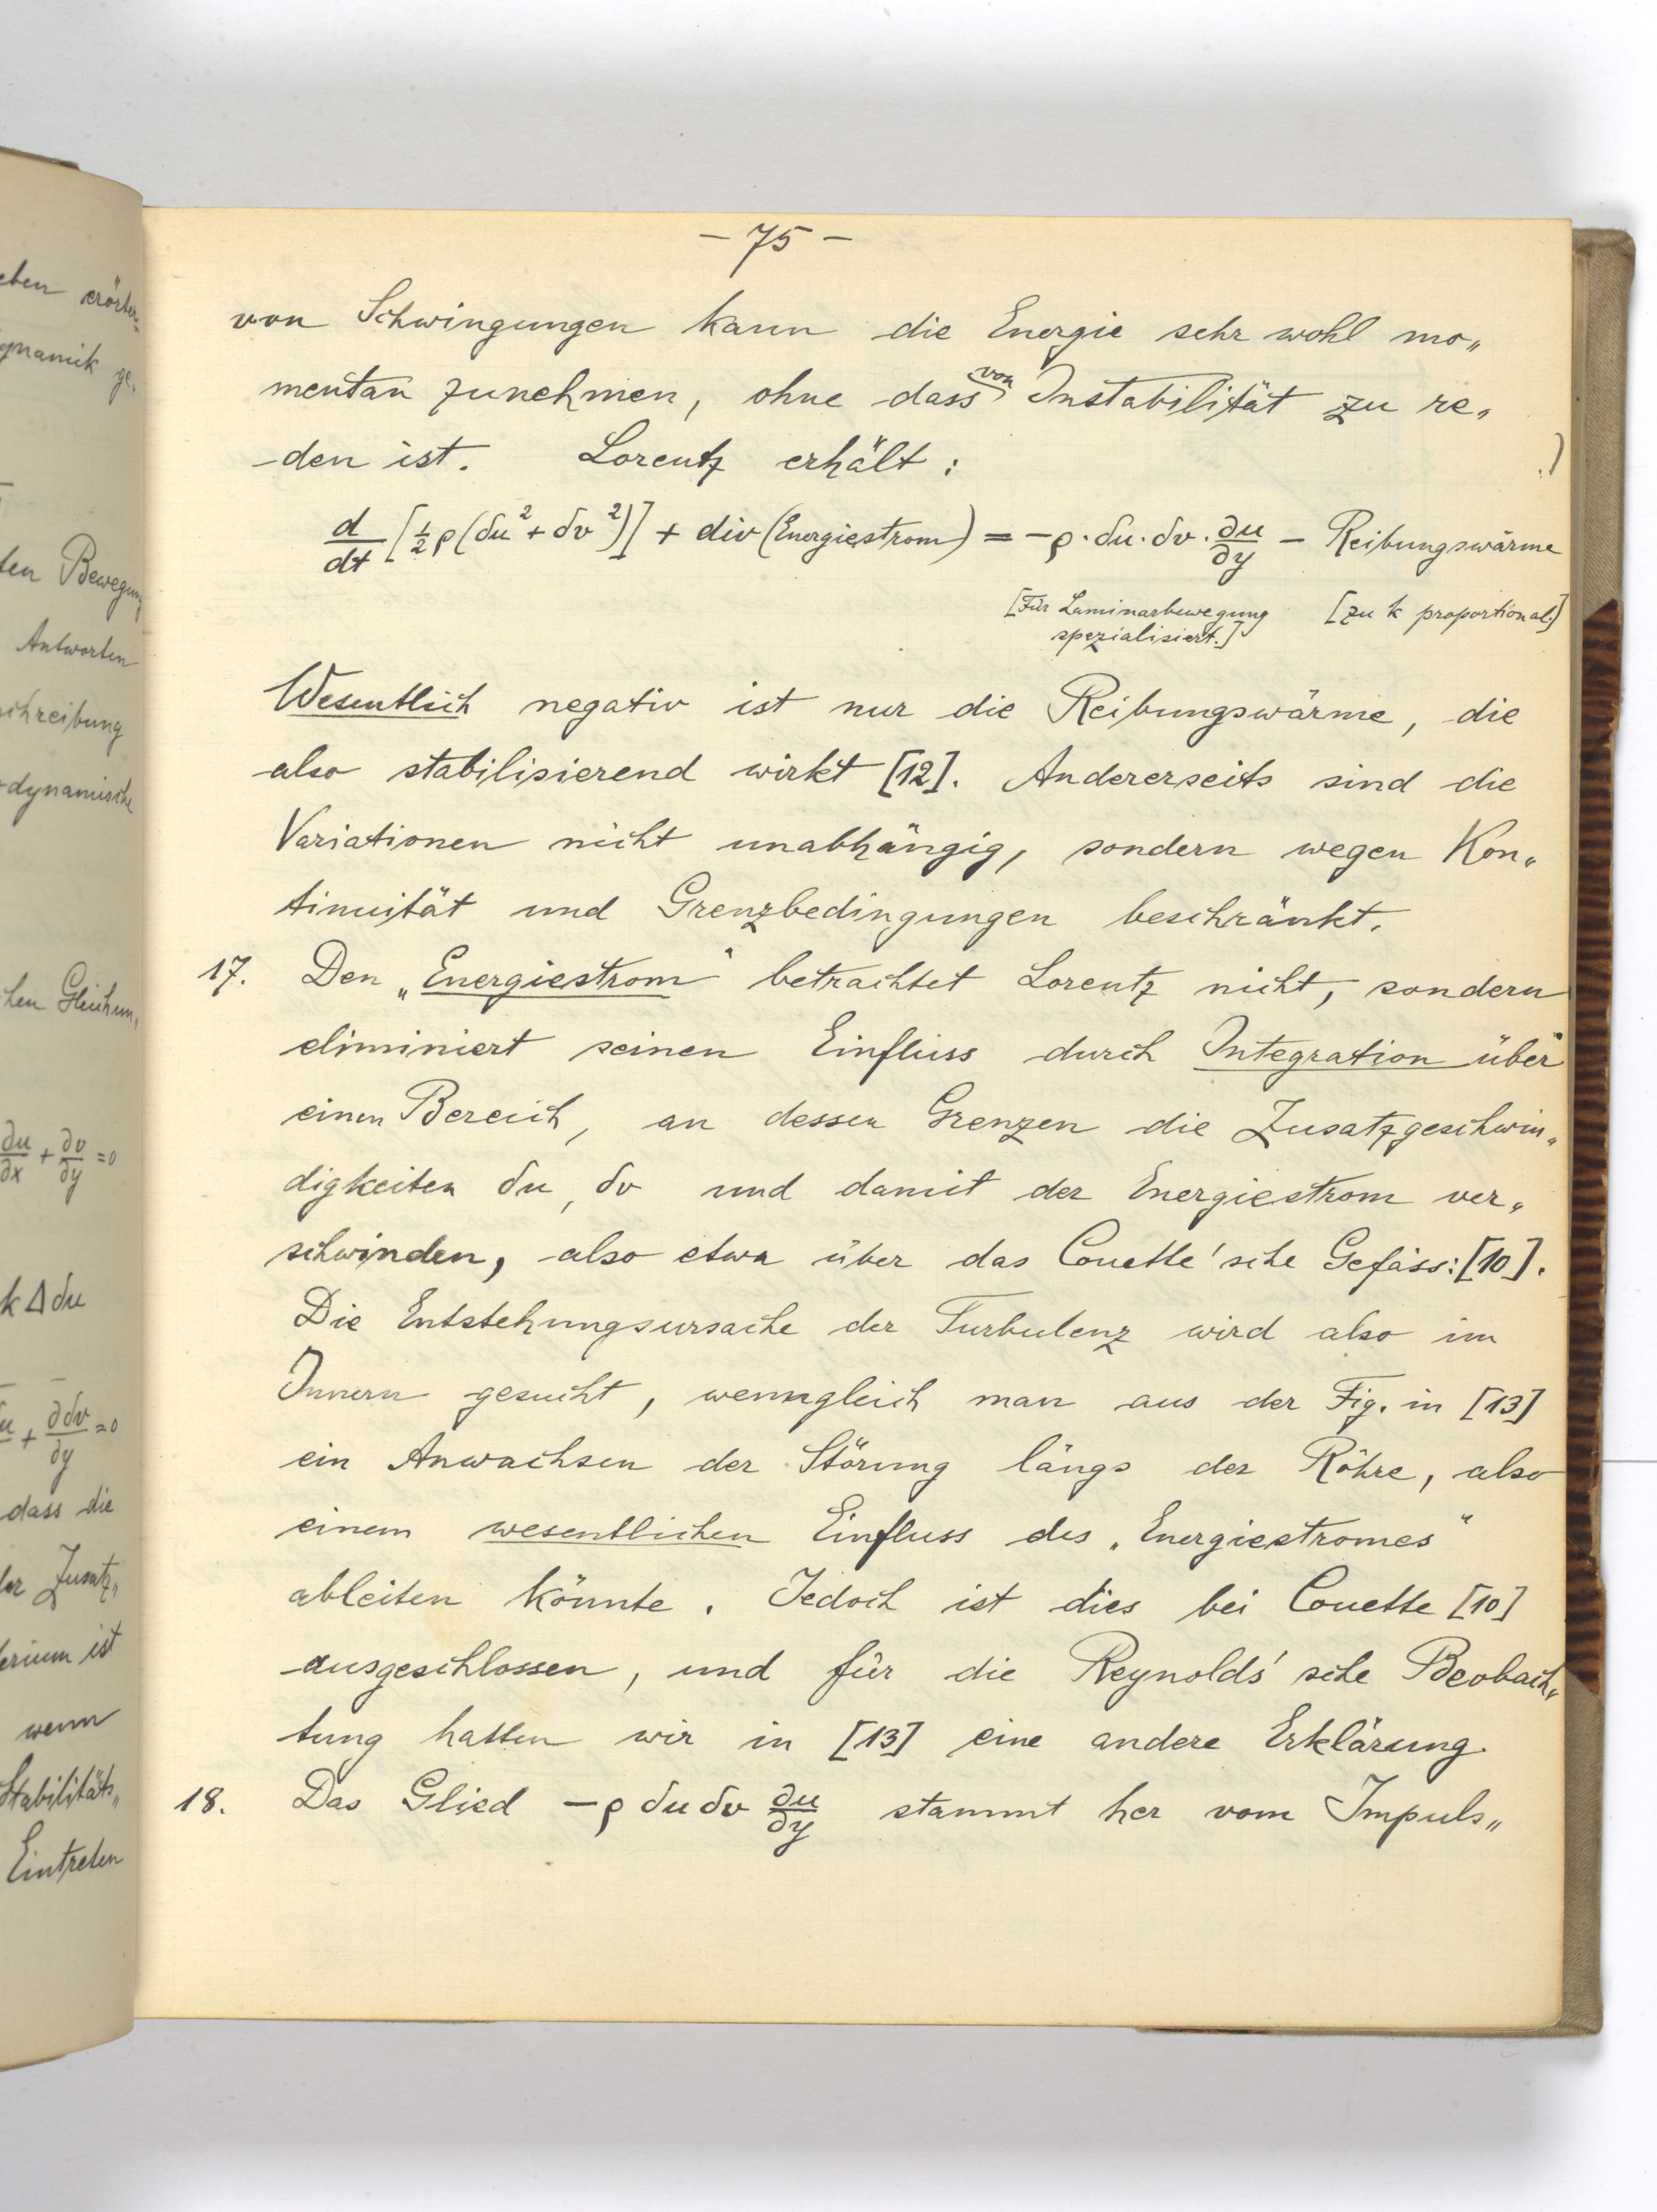 eben erörter=
ynamik ge„
ten Bewegung
Antworten
schreibung
dynamische
chen Gleichun„
∂u/∂x + ∂v/∂y = 0
k Δ δu
+ ∂δv/∂y = 0
dass die
Zusatz„
ist
wenn
Stabilitäts„
Eintreten
– 75 –
von Schwingungen kann die Energie sehr wohl mo„
mentan zunehmen, ohne dass von Instabilität zu re„
den ist. Lorentz erhält:
d/dt [½ρ(δu² + δv²)] + div (Energiestrom) = −ρ·δu·δv·∂u/∂y − Reibungswärme
[Für Laminarbewegung [zu k proportional.]
spezialisiert.]
Wesentlich negativ ist nur die Reibungswärme, die
also stabilisierend wirkt [12]. Andererseits sind die
Variationen nicht unabhängig, sondern wegen Kon„
tinuität und Grenzbedingungen beschränkt.
17. Den „Energiestrom“ betrachtet Lorentz nicht, sondern
eliminiert seinen Einfluss durch Integration über
einen Bereich, an dessen Grenzen die Zusatzgeschwin„
digkeiten δu, δv und damit der Energiestrom ver„
schwinden, also etwa über das Couette'sche Gefäss: [10].
Die Entstehungsursache der Turbulenz wird also im
Innern gesucht, wenngleich man aus der Fig. in [13]
ein Anwachsen der Störung längs der Röhre, also
einem wesentlichen Einfluss des „Energiestromes“
ableiten könnte. Jedoch ist dies bei Couette [10]
ausgeschlossen, und für die Reynolds'sche Beobach„
tung hatten wir in [13] eine andere Erklärung.
18. Das Glied −ρ δu δv ∂u/∂y stammt her vom Impuls„